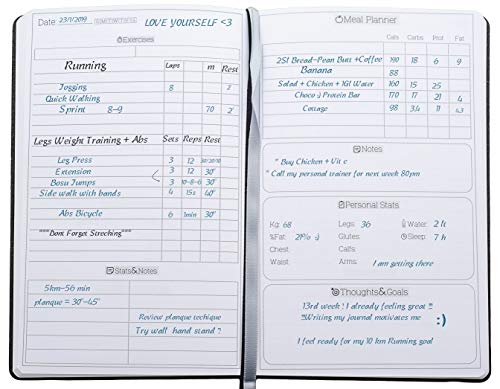 Date: 23/1/2019 S M T W T F S LOVE YOURSELF <3
Exercises
Running Laps m Rest
Jogging 8 2'
Quick Walking
Sprint 8-9 70 2'
Legs Weight Training + Abs Sets Reps Rest
Leg Press 3 12
Extension 3 12 30"
Bosu Jumps 3 10-8-6 30"
Side walk with bands 4 15s 40"
Abs Bicycle 6 1min 30"
"""Dont Forget Streching"""
Stats&Notes
5km-56 min
planque = 30"-45"
Review planque techique
Try wall hand stand ?
Meal Planner
Cals Carbs Prot. Fat
2Sl Bread-Pean Butt +Coffee 190 18 6 9
Banana 88
Salad + Chicken + 1Gl Water 160 15 25
Choco :) Protein Bar 170 17 21 4
Cottage 98 3.4 11 4.3
Notes
" Buy Chicken + Vit c
" Call my personal trainer for next week 80pm
Personal Stats
Kg: 68 Legs: 36 Water: 2 lt
%Fat: 21% :) Glutes: Sleep: 7 h
Chest: Calfs:
Waist: Arms: I am getting there
Thoughts&Goals
13rd week ! I already feeling great !!!
!!!Writing my journal motivates me :)
I feel ready for my 10 km Running goal